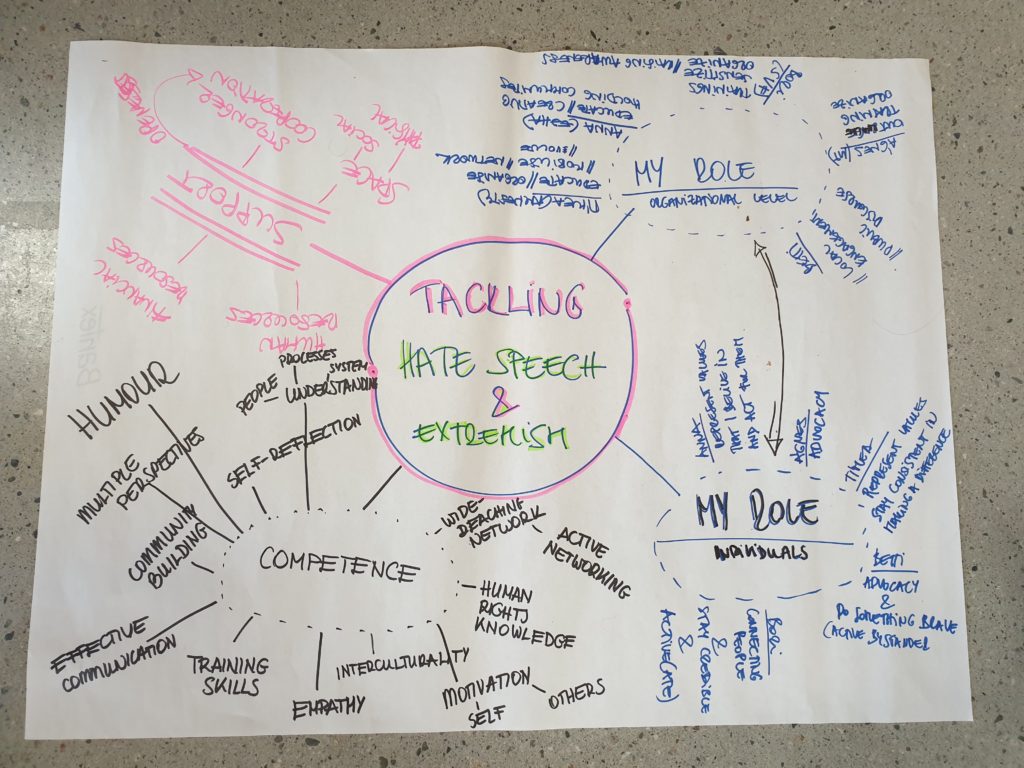 TACKLING
HATE SPEECH
&
EXTREMISM
SUPPORT
STRONGER
COOPERATION
SPACE
SOCIAL
PHYSICAL
FINANCIAL
RESOURCES
HUMAN
RESOURCES
MY ROLE
ORGANIZATIONAL LEVEL
EDUCATE // ORGANIZE
// MOBILISE // NETWORK
// EVOLVE
EDUCATE // CREATING
HOLDING COMMUNITIES
TRAININGS
SENSITIZE
ORGANIZE // RAISING AWARENESS
TRAINING
ORGANIZE
BETTI
// LOCAL
ENGAGEMENT
// PUBLIC DISCOURSE
MY ROLE
INDIVIDUALS
ANNA
REPRESENT VALUES
THAT I BELIVE IN
AND ACT FOR THEM
AGNES
ADVOCACY
TIMEA
REPRESENT VALUES
STAY CONSISTENT IN
MAKING A DIFFERENCE
BETTI
ADVOCACY
&
DO SOMETHING BRAVE
(ACTIVE BYSTANDER
BORI
CONNECTING
PEOPLE
&
STAY CREDIBLE
&
ACTIVE(ATE)
COMPETENCE
HUMOUR
MULTIPLE
PERSPECTIVES
COMMUNITY
BUILDING
EFFECTIVE
COMMUNICATION
TRAINING
SKILLS
EMPATHY
INTERCULTURALITY
MOTIVATION
SELF
OTHERS
HUMAN
RIGHTS
KNOWLEDGE
WIDE-
REACHING
NETWORK
ACTIVE
NETWORKING
SELF-REFLECTION
PROCESSES
PEOPLE
SYSTEM
UNDERSTANDING
Bantex